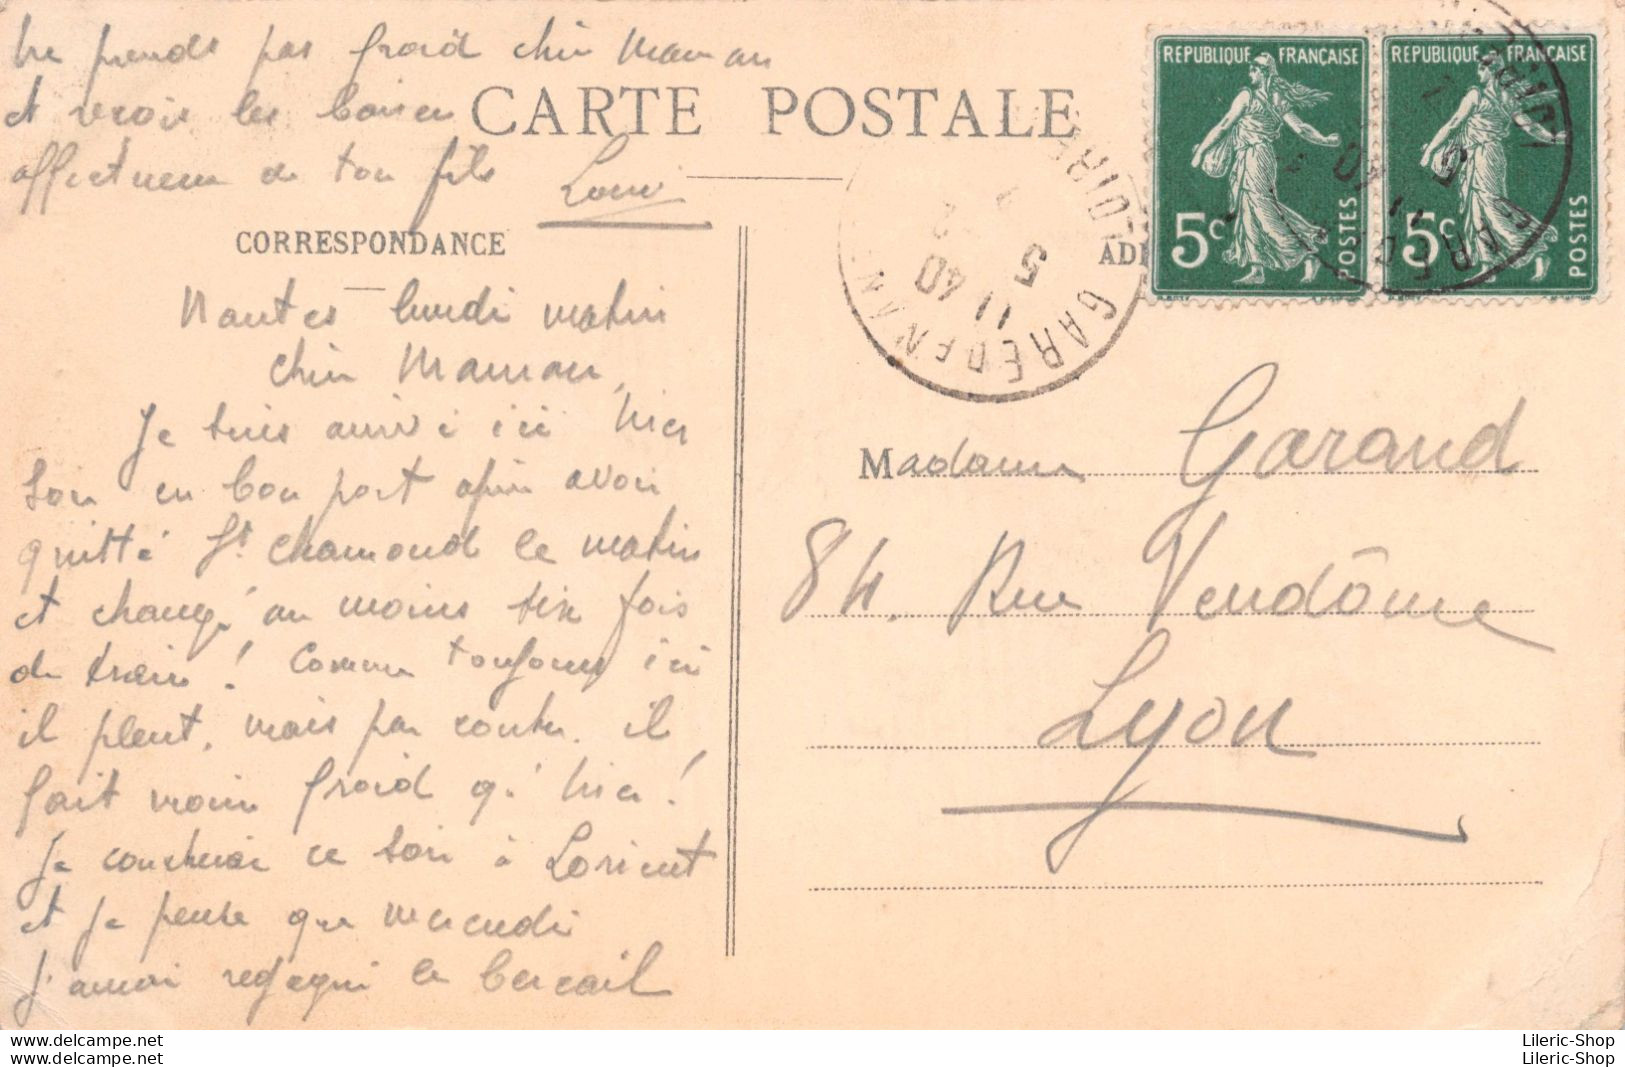 Ne prends pas froid chère Maman
et reçois les baisers
affectueux de ton fils
Louis
CARTE POSTALE
CORRESPONDANCE
Nantes lundi matin
chère Maman,
Je suis arrivé ici hier
soir en bon port après avoir
quitté St Chamond le matin
et changé au moins six fois
de train ! Comme toujours ici
il pleut, mais par contre il
fait moins froid qu'hier !
Je coucherai ce soir à Lorient
et je pense que mercredi
j'aurai regagné le bercail
REPUBLIQUE FRANÇAISE
5c POSTES
REPUBLIQUE FRANÇAISE
5c POSTES
GARE DE NANTES
11 40
5
ADR
Madame Garand
84. Rue Vendôme
Lyon
Lileric-Shop
Lileric-Shop
Lileric-Shop
Lileric-Shop